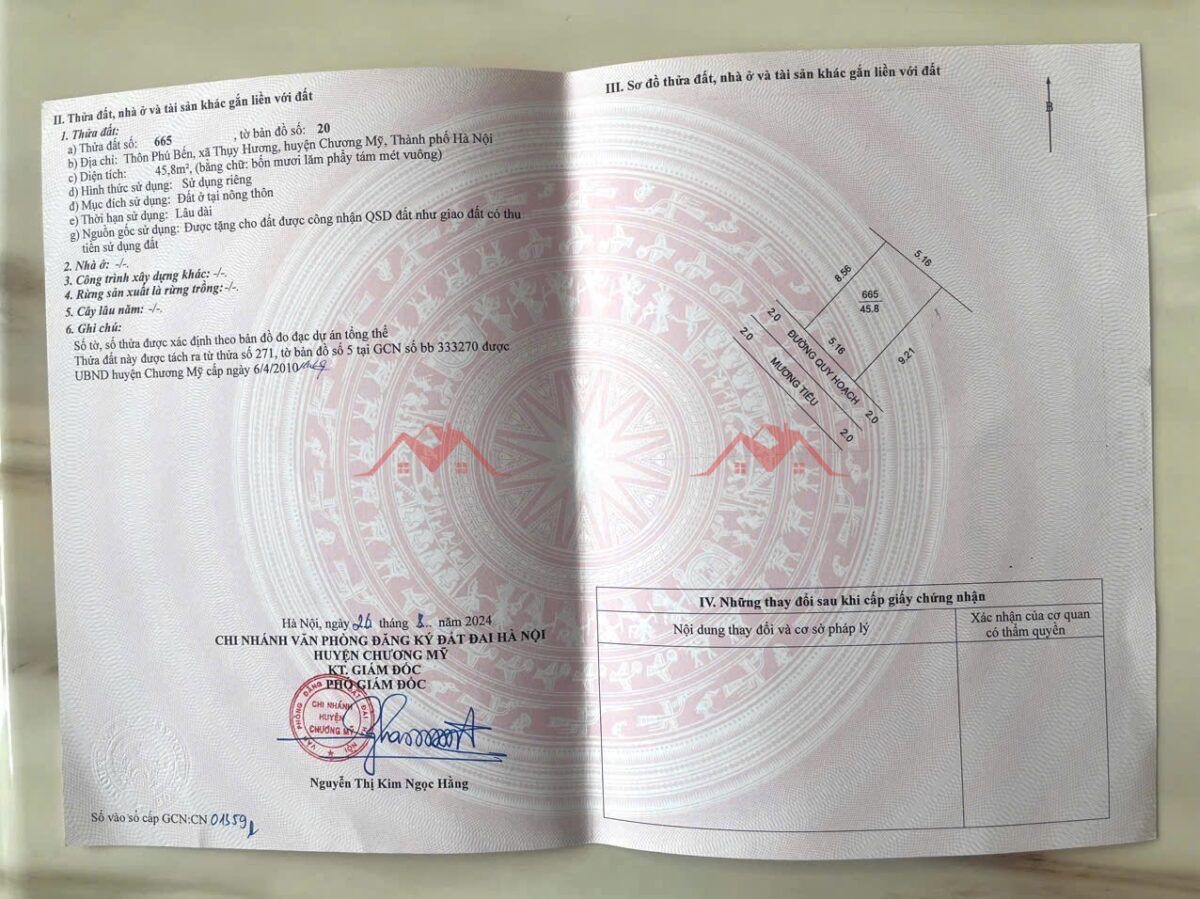 II. Thửa đất, nhà ở và tài sản khác gắn liền với đất
1. Thửa đất:
a) Thửa đất số: 665 , tờ bản đồ số: 20
b) Địa chỉ: Thôn Phú Bến, xã Thụy Hương, huyện Chương Mỹ, Thành phố Hà Nội
c) Diện tích: 45,8m², (bằng chữ: bốn mươi lăm phẩy tám mét vuông)
d) Hình thức sử dụng: Sử dụng riêng
đ) Mục đích sử dụng: Đất ở tại nông thôn
e) Thời hạn sử dụng: Lâu dài
g) Nguồn gốc sử dụng: Được tặng cho đất được công nhận QSD đất như giao đất có thu
tiền sử dụng đất
2. Nhà ở: -/-.
3. Công trình xây dựng khác: -/-.
4. Rừng sản xuất là rừng trồng: -/-.
5. Cây lâu năm: -/-.
6. Ghi chú:
Số tờ, số thửa được xác định theo bản đồ đo đạc dự án tổng thể
Thửa đất này được tách ra từ thửa số 271, tờ bản đồ số 5 tại GCN số bb 333270 được
UBND huyện Chương Mỹ cấp ngày 6/4/2010
Hà Nội, ngày 26 tháng 8.. năm 2024
CHI NHÁNH VĂN PHÒNG ĐĂNG KÝ ĐẤT ĐAI HÀ NỘI
HUYỆN CHƯƠNG MỸ
KT. GIÁM ĐỐC
PHÓ GIÁM ĐỐC
VĂN PHÒNG ĐĂNG KÝ ĐẤT ĐAI HÀ NỘI
CHI NHÁNH
HUYỆN
CHƯƠNG MỸ
Nguyễn Thị Kim Ngọc Hằng
Số vào sổ cấp GCN:CN 01359
III. Sơ đồ thửa đất, nhà ở và tài sản khác gắn liền với đất
B
8.56
5.16
665
45.8
2.0
5.16
9.21
2.0
ĐƯỜNG QUY HOẠCH
MƯƠNG TIÊU
2.0
2.0
IV. Những thay đổi sau khi cấp giấy chứng nhận
Nội dung thay đổi và cơ sở pháp lý
Xác nhận của cơ quan
có thẩm quyền